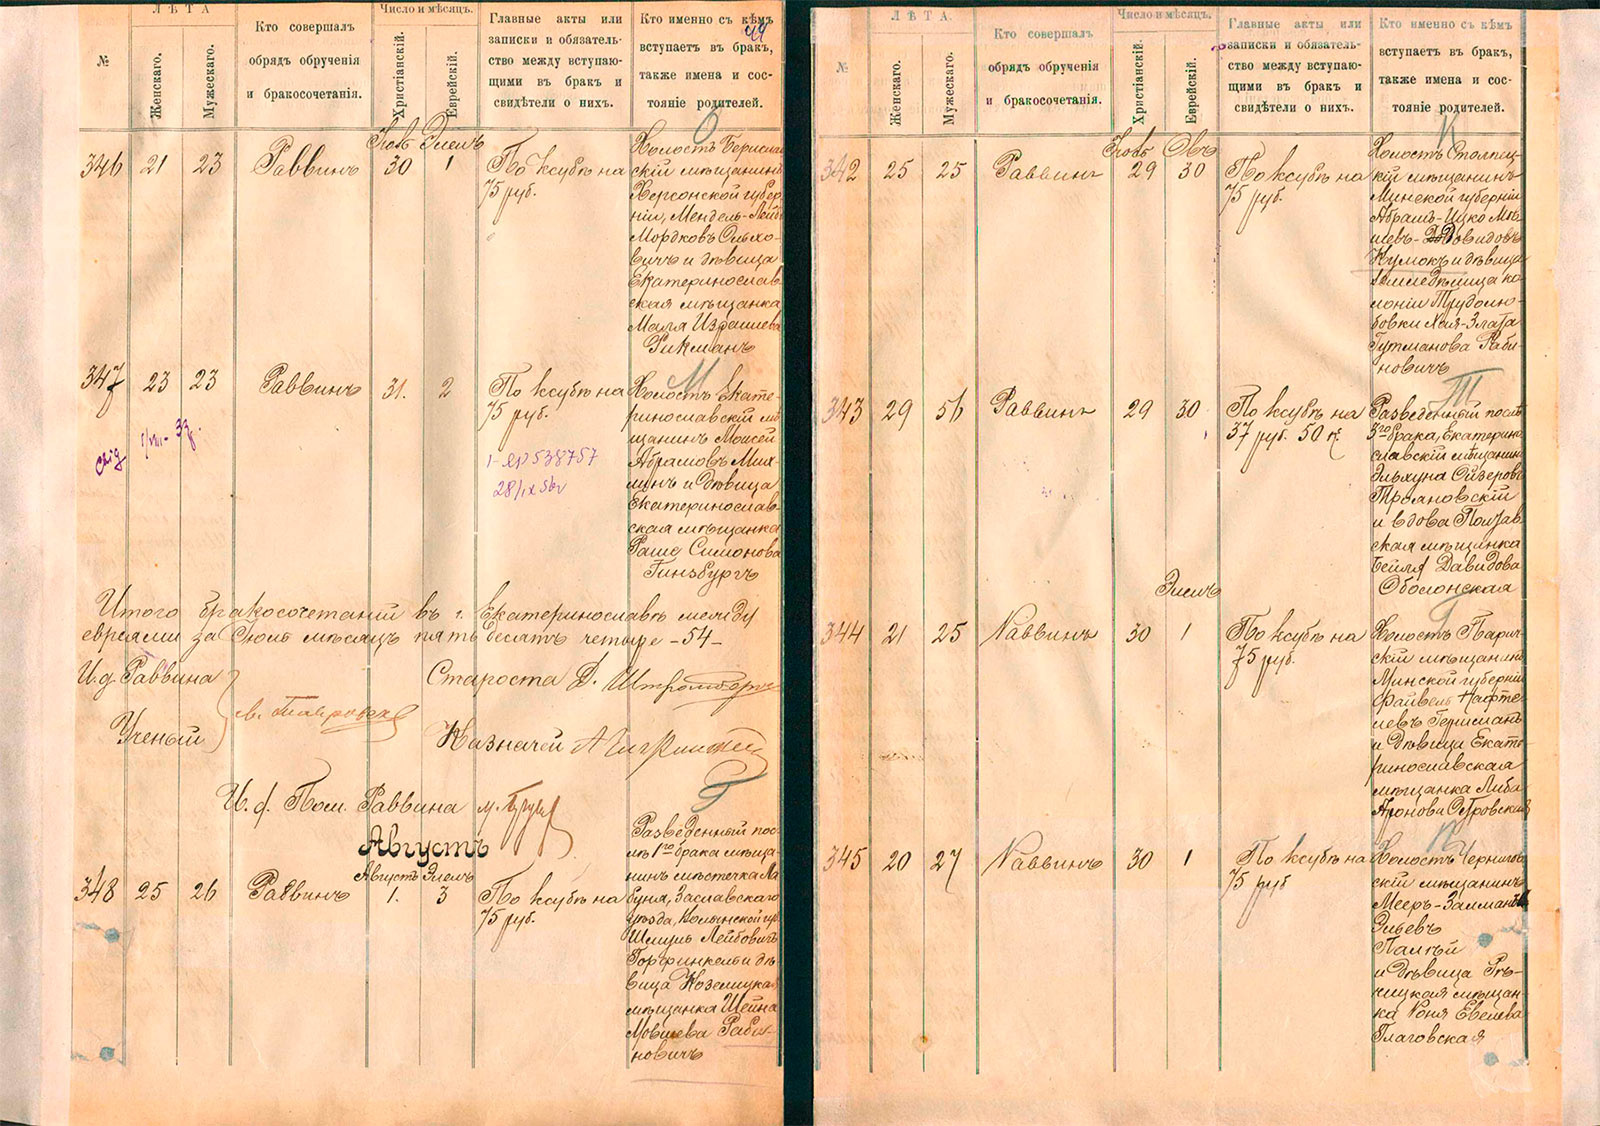 №
ЛѢТА
Женскаго.
Мужескаго.
Кто совершалъ
обрядъ обрученія
и бракосочетанія.
Число и мѣсяцъ.
Христіанскій.
Еврейскій.
Главные акты или
записки и обязатель-
ство между вступаю-
щими въ бракъ и
свидѣтели о нихъ.
Кто именно съ кѣмъ
вступаетъ въ бракъ,
также имена и сос-
тояніе родителей.
346 21 23 Раввинъ 30 1
По ксубѣ на
75 руб.
Холостъ
скій мѣщанинъ
Херсонской губер-
ніи, Мендель-Лейб
Мордковъ Ольхо-
вичъ и дѣвица
Екатеринослав-
ская мѣщанка
Маля Израилева
Рикманъ
347 23 23 Раввинъ 31. 2
По ксубѣ на
75 руб.
538757
Холостъ Екате-
ринославскій мѣ-
щанинъ Моисей
Абрамовъ Мих-
линъ и дѣвица
Екатеринослав-
ская мѣщанка
Раше Симонова
Гинзбургъ
Итого бракосочетаній въ г. Екатеринославѣ между
евреями за Іюль мѣсяцъ пятьдесятъ четыре -54-
И. д. Раввина
Староста
Ученый
Казначей
И. ф. Пом. Раввина
Августъ
Августъ Элелъ
348 25 26 Раввинъ 1. 3
По ксубѣ на
75 руб.
Разведенный пос-
лѣ 1го брака мѣща-
нинъ мѣстечка Ла-
буня, Заславскаго
уѣзда, Волынской губ
Шмуль Лейбовичъ
Горфинкель и дѣ-
вица Козелицкая
мѣщанка Шейна
Мовшева Раби-
новичъ
№
ЛѢТА.
Женскаго.
Мужескаго.
Кто совершалъ
обрядъ обрученія
и бракосочетанія.
Число и мѣсяцъ.
Христіанскій.
Еврейскій.
Главные акты или
записки и обязатель-
ство между вступаю-
щими въ бракъ и
свидѣтели о нихъ.
Кто именно съ кѣмъ
вступаетъ въ бракъ,
также имена и сос-
тояніе родителей.
342 25 25 Раввинъ 29 30
По ксубѣ на
75 руб.
Холостъ Столпец-
кій мѣщанинъ
Минской губерніи
Абрамъ-Ицко
Довидовъ
Кумокъ и дѣвица
земледѣлица ко-
лоніи Трудолю-
бовки Хая-Злата
Гутманова Раби-
новичъ
343 29 56 Раввинъ 29 30
По ксубѣ на
37 руб. 50 к.
Разведенный послѣ
3го брака, Екатерино
славскій мѣщанинъ
Эльхуна Ойзеровъ
Трояновскій
и вдова Полтав-
ская мѣщанка
Бейля Давидова
Оболонская
Элелъ
344 21 25 Раввинъ 30 1
По ксубѣ на
75 руб.
Холостъ Парич-
скій мѣщанинъ
Минской губерніи
Файвель Нафте-
левъ Герцманъ
и дѣвица Екате-
ринославская
мѣщанка Либа
Аронова Островская
345 20 27 Раввинъ 30 1
По ксубѣ на
75 руб
Холостъ Чернигов
скій мѣщанинъ
Мееръ-Залманъ
Эльевъ
Палѣй
и дѣвица Рѣ-
чицкая мѣщан-
ка Роня Евелева
Глаговская